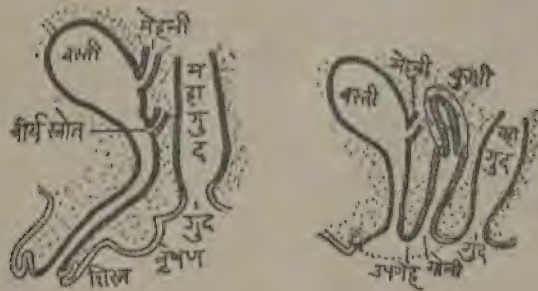 मेहनी
बस्ती
महागुद
वीर्य स्त्रोत
गुद
वृषण
शिस्न
मेहनी
कुक्षी
बस्ती
महागुद
गुद
उपगेह योनी